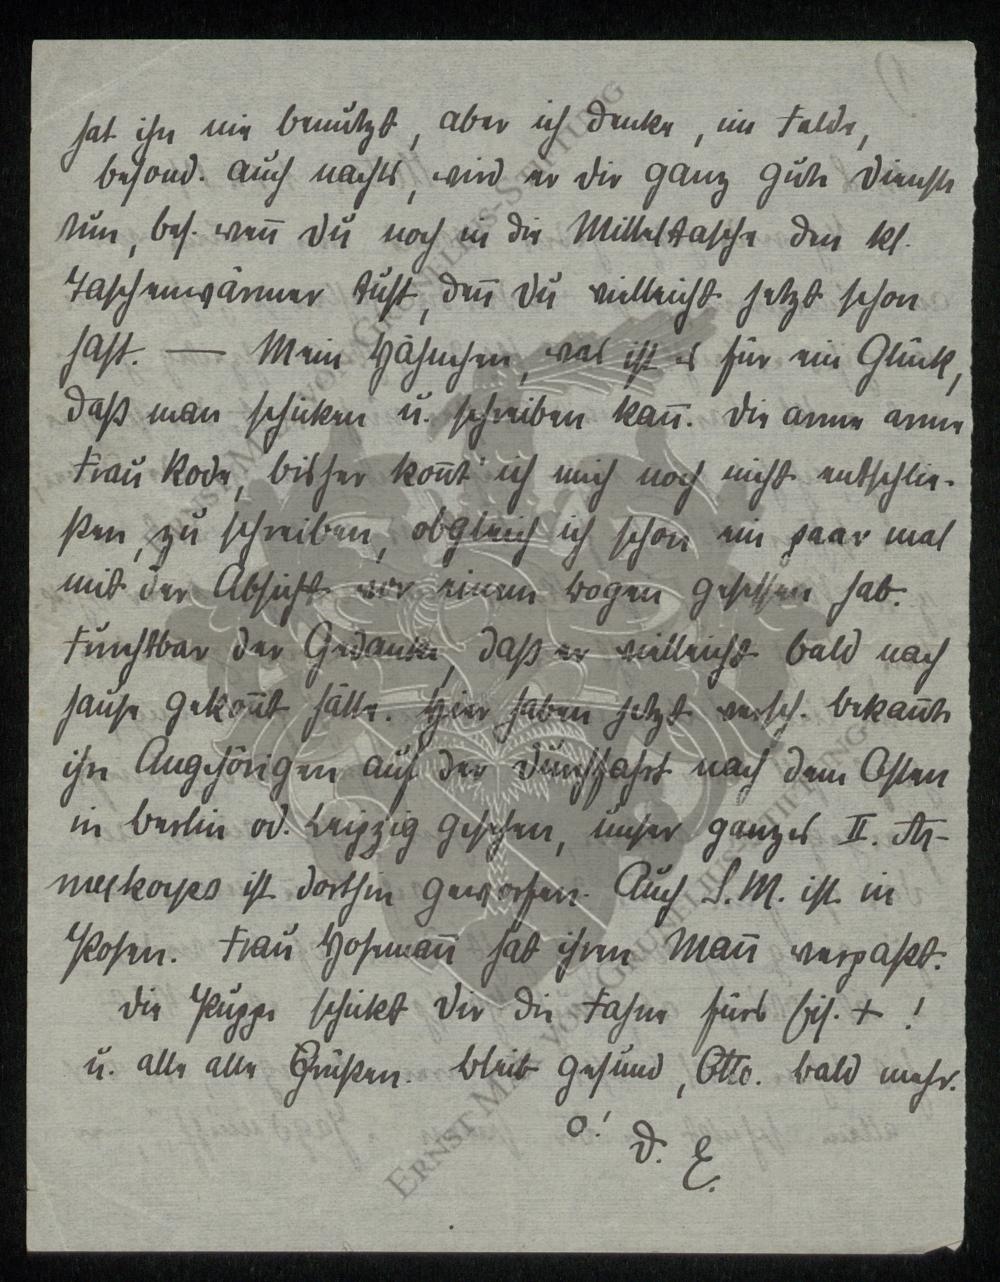 hat ihn nie benützt, aber ich denke, im Felde,
besond. auch nachts, wird er Dir ganz gute Dienste
tun, bes. wen̄ Du noch in die Mitteltasche den kl.
Taschenwärmer tust, den Du vielleicht jetzt schon
hast. — Mein Hähnchen, was ist es für ein Glück,
daß man schicken u. schreiben kan̄. Die arme arme
Frau Rode, bisher kon̄t' ich mich noch nicht entschlie-
ßen, zu schreiben, obgleich ich schon ein paar mal
mit der Absicht vor einem Bogen gesessen hab.
Furchtbar der Gedanke, daß er vielleicht bald nach
Hause gekon̄t hätte. Hier haben jetzt versch. Bekan̄te
ihre Angehörigen auf der Durchfahrt nach dem Osten
in Berlin od. Leipzig gesehen, unser ganzes II. Ar-
meekorps ist dorthin geworfen. Auch S. M. ist in
Posen. Frau Hofman̄ hat ihren Man̄ verpaßt.
Die Puppe schickt Dir die Fahne fürs Eis. + !
u. alle alle Grüßen. Bleib gesund, Otto. Bald mehr.
O! D. E.
ERNST MAX VON GRUNELIUS-STIFTUNG
ERNST MAX VON GRUNELIUS-STIFTUNG